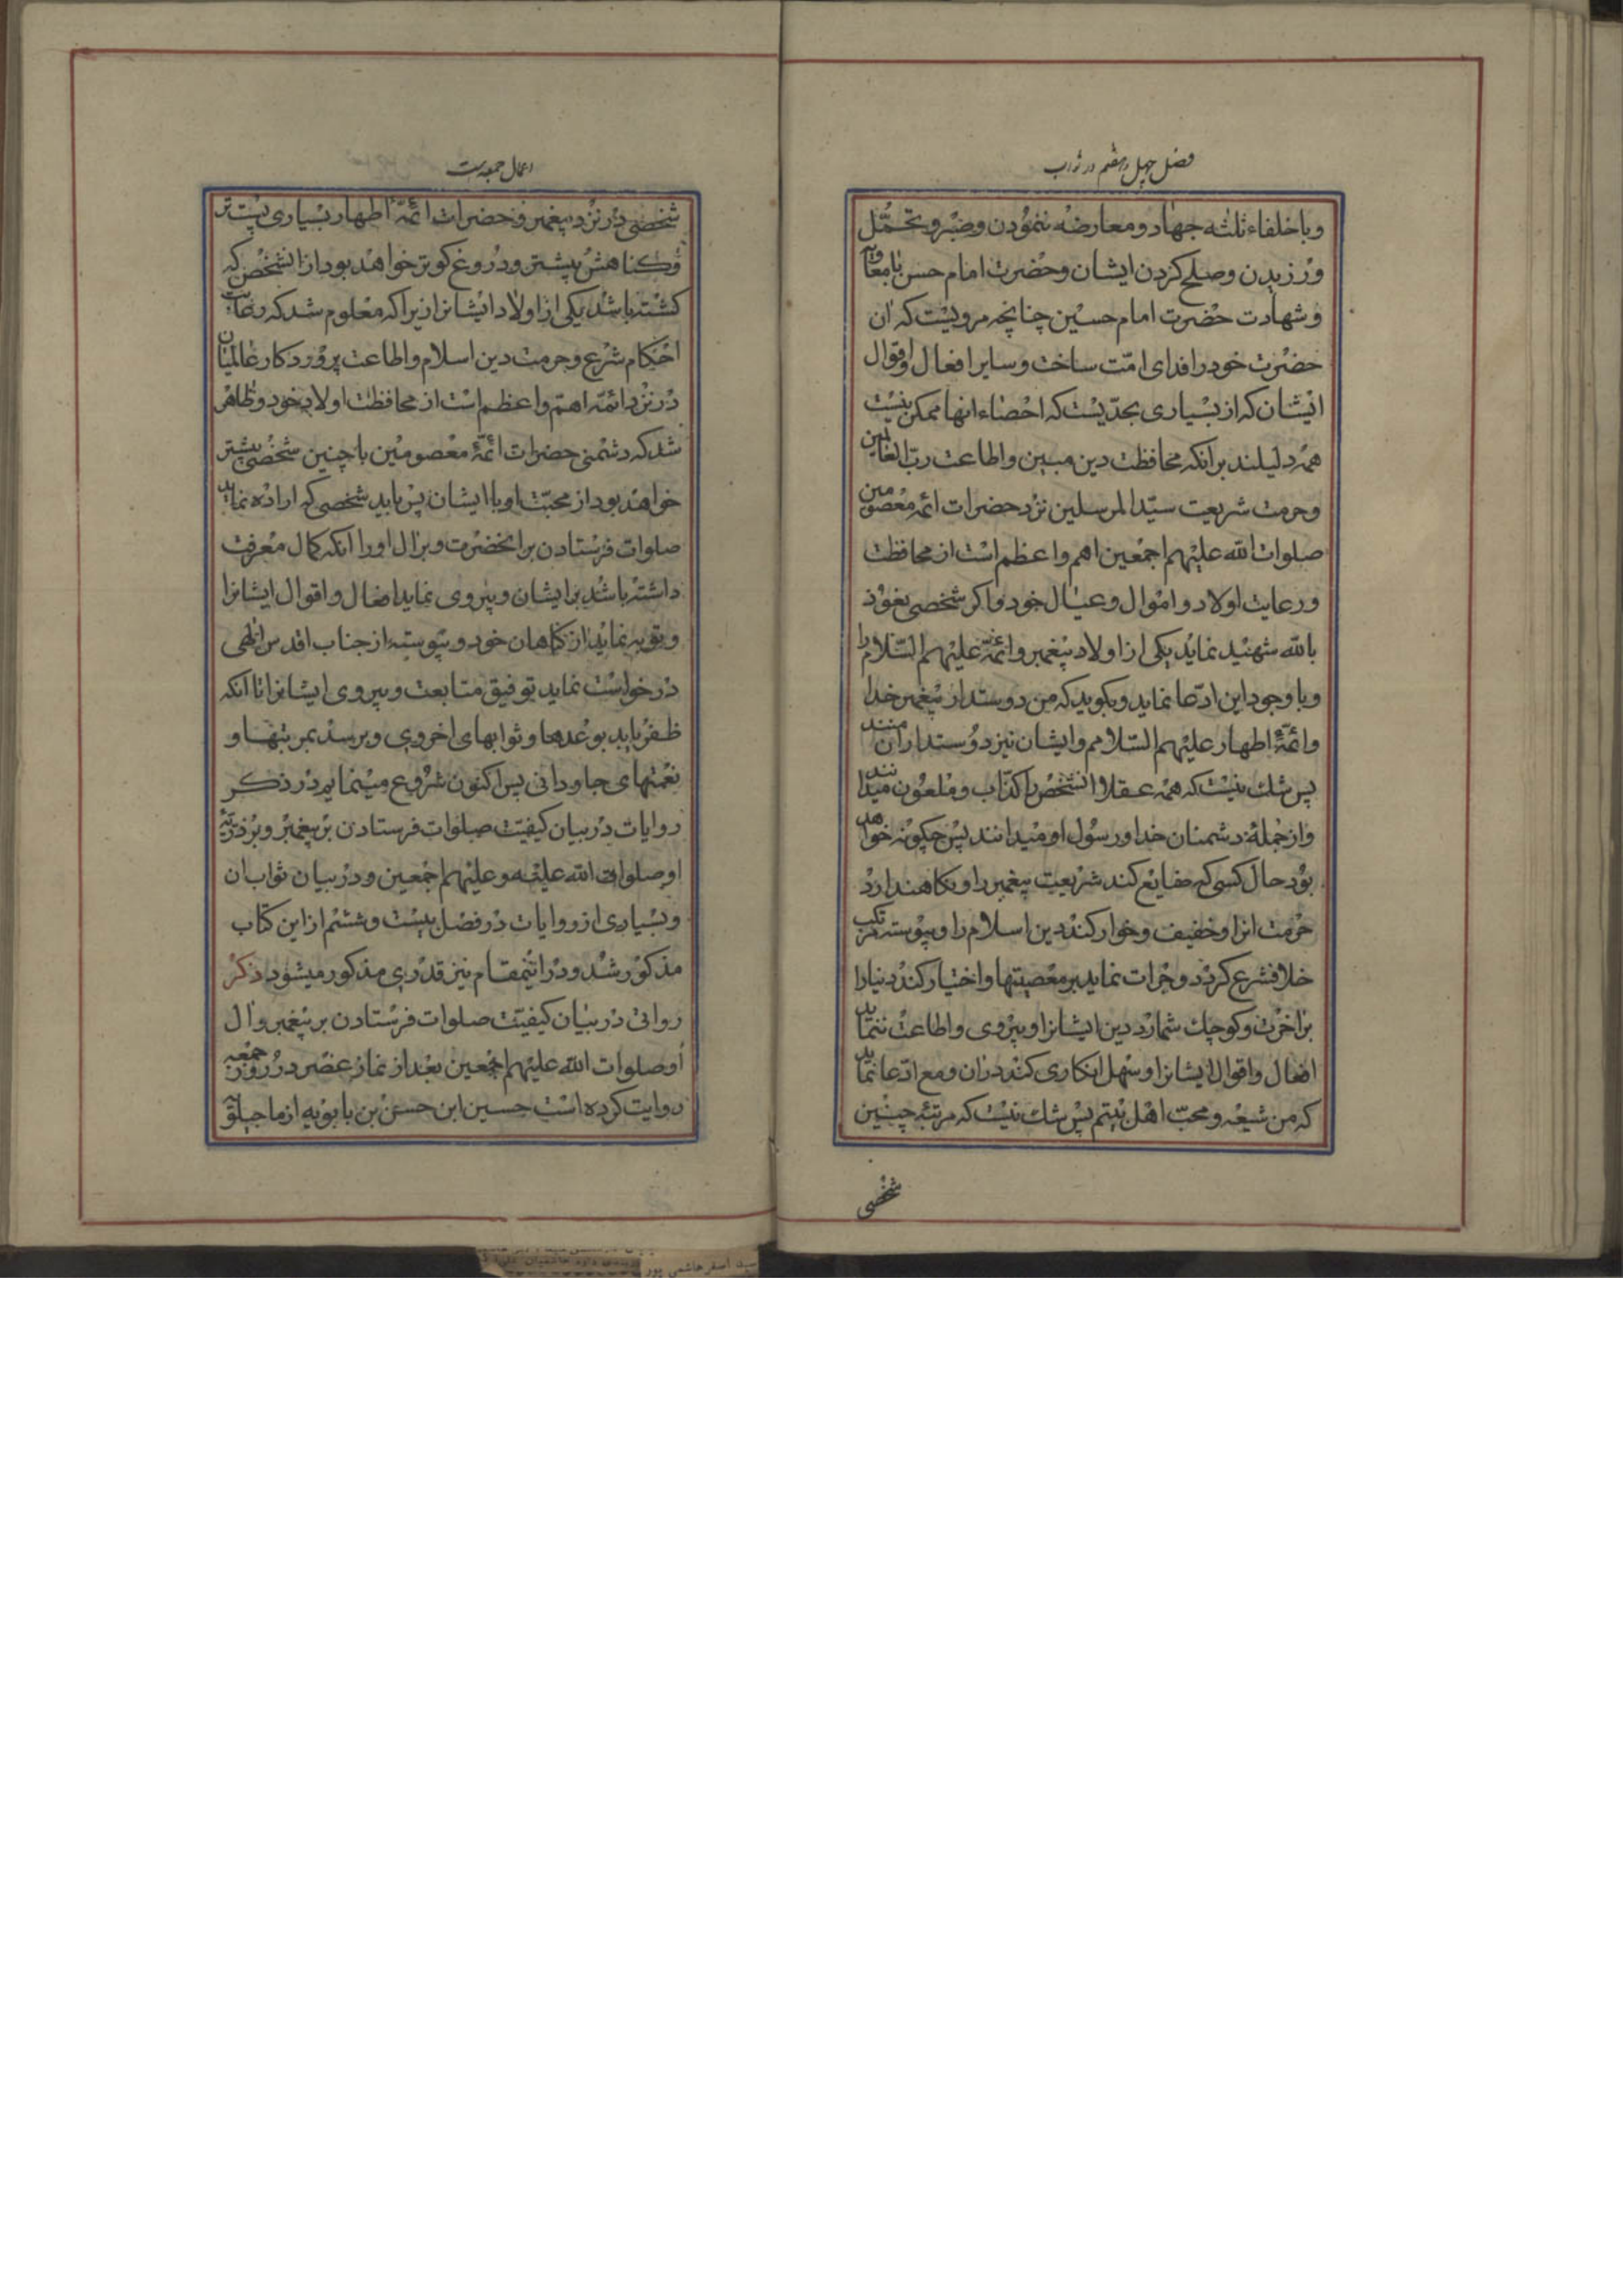 فصل چهل و هفتم در ثواب
وبا خلفاء ثلثه جهاد و معارضه ننمودن و صبر و تحمّل
ورزیدن و صلح کردن ایشان و حضرت امام حسن با معاویه
و شهادت حضرت امام حسین چنانچه مرویست که ان
حضرت خود را فدای امّت ساخت و سایر افعال و اقوال
ایشان که از بسیاری بحدّیست که احصاء انها ممکن نیست
همه دلیلند بر آنکه محافظت دین مبین و اطاعت ربّ العالمین
و حرمت شریعت سیّد المرسلین نزد حضرات ائمه معصومین
صلوات الله علیهم اجمعین اهم و اعظم است از محافظت
و رعایت اولاد و اموال و عیال خود و اکر شخصی نعوذ
بالله شهید نماید یکی از اولاد پیغمبر و ائمّه علیهم السّلام را
و با وجود این ادّعا نماید و بکوید که من دوستدار پیغمبر خدا
و ائمّهٔ اطهار علیهم السّلامم و ایشان نیز دوستداران منند
پس شك نیست که همه عقلا انشخص را کذّاب و ملعون میدانند
و از جملهٔ دشمنان خدا و رسول او میدانند پس چکونه خواهد
بود حال کسی که ضایع کند شریعت پیغمبر را و نکاه ندارد
حرمت انرا و خفیف و خوار کند دین اسلام را و پیوسته مرتکب
خلاف شرع کردد و جرات نماید بر معصیتها و اختیار کند دنیا را
بر اخرت و کوچك شمارد دین ایشانرا و پیروی و اطاعت ننماید
افعال و اقوال ایشانرا و سهل انکاری کند در ان و مع ادّعا نماید
که من شیعه و محبّ اهل بیتم پس شك نیست که مرتبهٔ چنین
شخصی
اعمال جمعه است
شخصی در نزد پیغمبر و حضرات ائمّهٔ اطهار بسیاری پست تر
و کناهش بیشتر و دروغ کوتر خواهد بود از انشخص که
کشته باشد یکی از اولاد ایشانرا زیرا که معلوم شد که رعایت
احکام شرع و حرمت دین اسلام و اطاعت پروردکار عالمیان
در نزد ائمّه اهمّ و اعظم است از محافظت اولاد خود و ظاهر
شد که دشمنی حضرات ائمّهٔ معصومین با چنین شخصی بیشتر
خواهد بود از محبّت او با ایشان پس باید شخصی که اراده نماید
صلوات فرستادن بر انحضرت و بر ال او را انکه کمال معرفت
داشته باشد بر ایشان و پیروی نماید افعال و اقوال ایشانرا
و توبه نماید از کناهان خود و پیوسته از جناب اقدس الهی
درخواست نماید توفیق متابعت و پیروی ایشانرا تا انکه
ظفر یابد بوعدها و ثوابهای اخروی و برسد بمرتبها و
نعمتهای جاودانی پس اکنون شروع مینمایم در ذکر
روایات در بیان کیفیّت صلوات فرستادن بر پیغمبر و بر ذریّه
او صلوات الله علیه و علیهم اجمعین و در بیان ثواب ان
و بسیاری از روایات در فصل بیست و ششم از این کتاب
مذکور شد و در اینمقام نیز قدری مذکور میشود ذکر
روایتی در بیان کیفیّت صلوات فرستادن بر پیغمبر و ال
او صلوات الله علیهم اجمعین بعد از نماز عصر در روز جمعه
روایت کرده است حسین ابن حسن بن بابویه از ماجیلویه
سید اصغر هاشمی پور